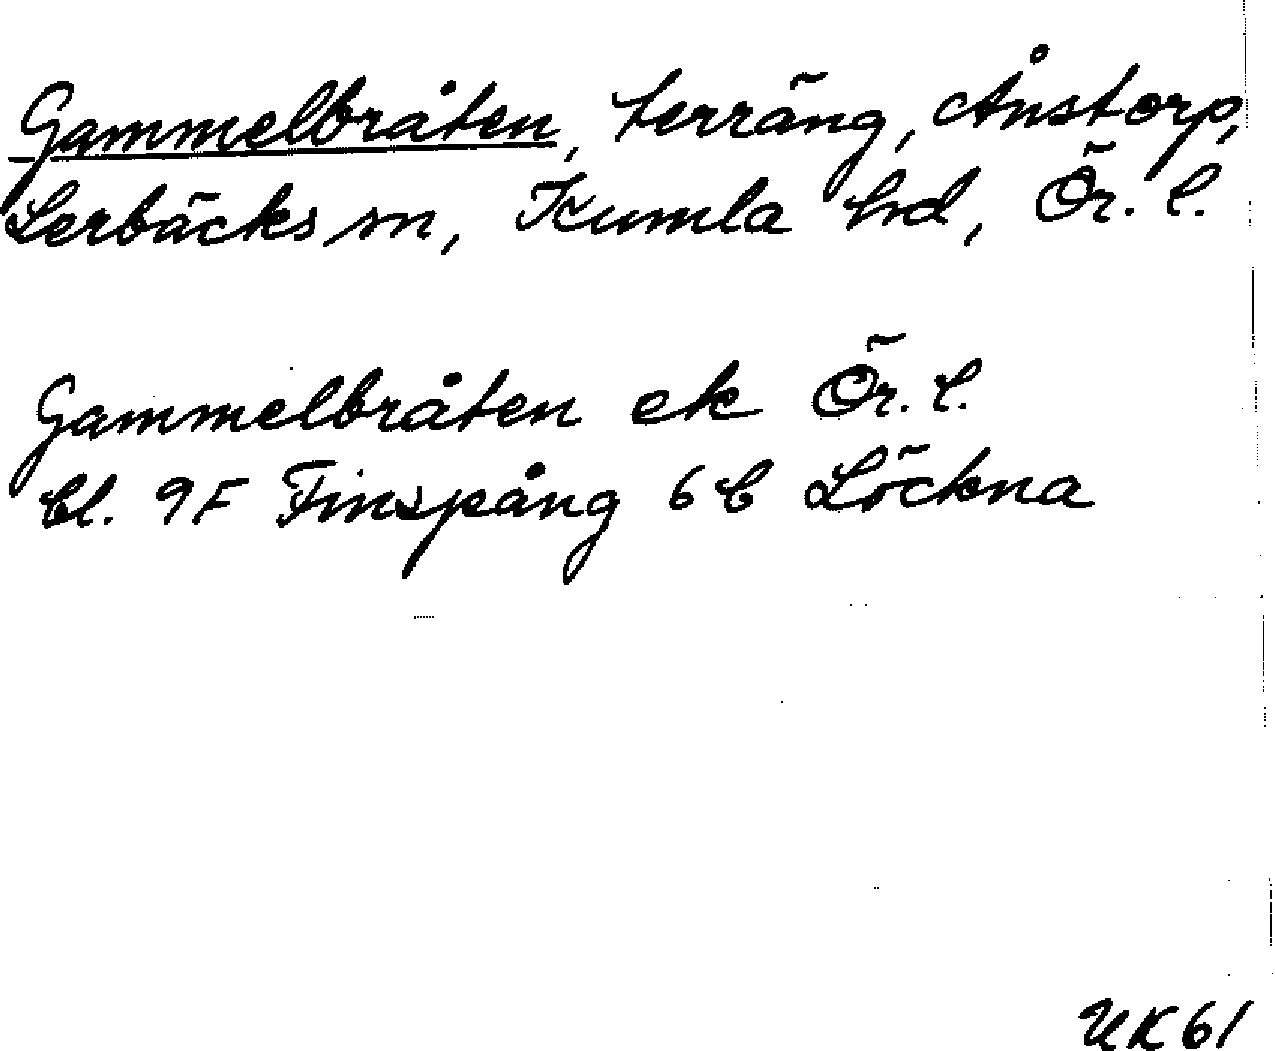 Gammelbråten, terräng, Ånstorp,
Lerbäcks sn, Kumla hd, Ör. l.
Gammelbråten ek Ör. l.
bl. 9F Finspång 6b Löckna
UK61